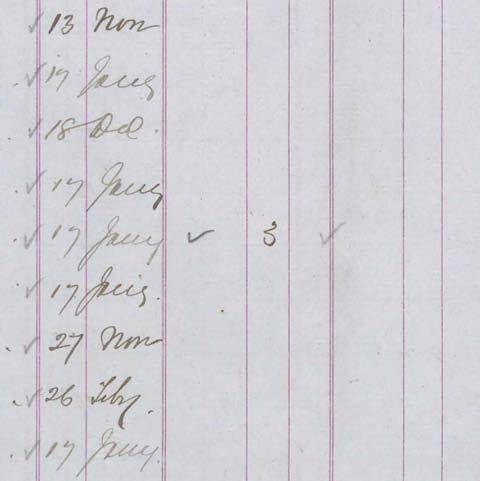 ✓ 13 Nov
✓ 17 Jany
✓ 18 Dec.
✓ 17 Jany
✓ 17 Jany ✓ 3 ✓
✓ 17 Jany.
✓ 27 Nov
✓ 26 Feby.
✓ 17 Jany.